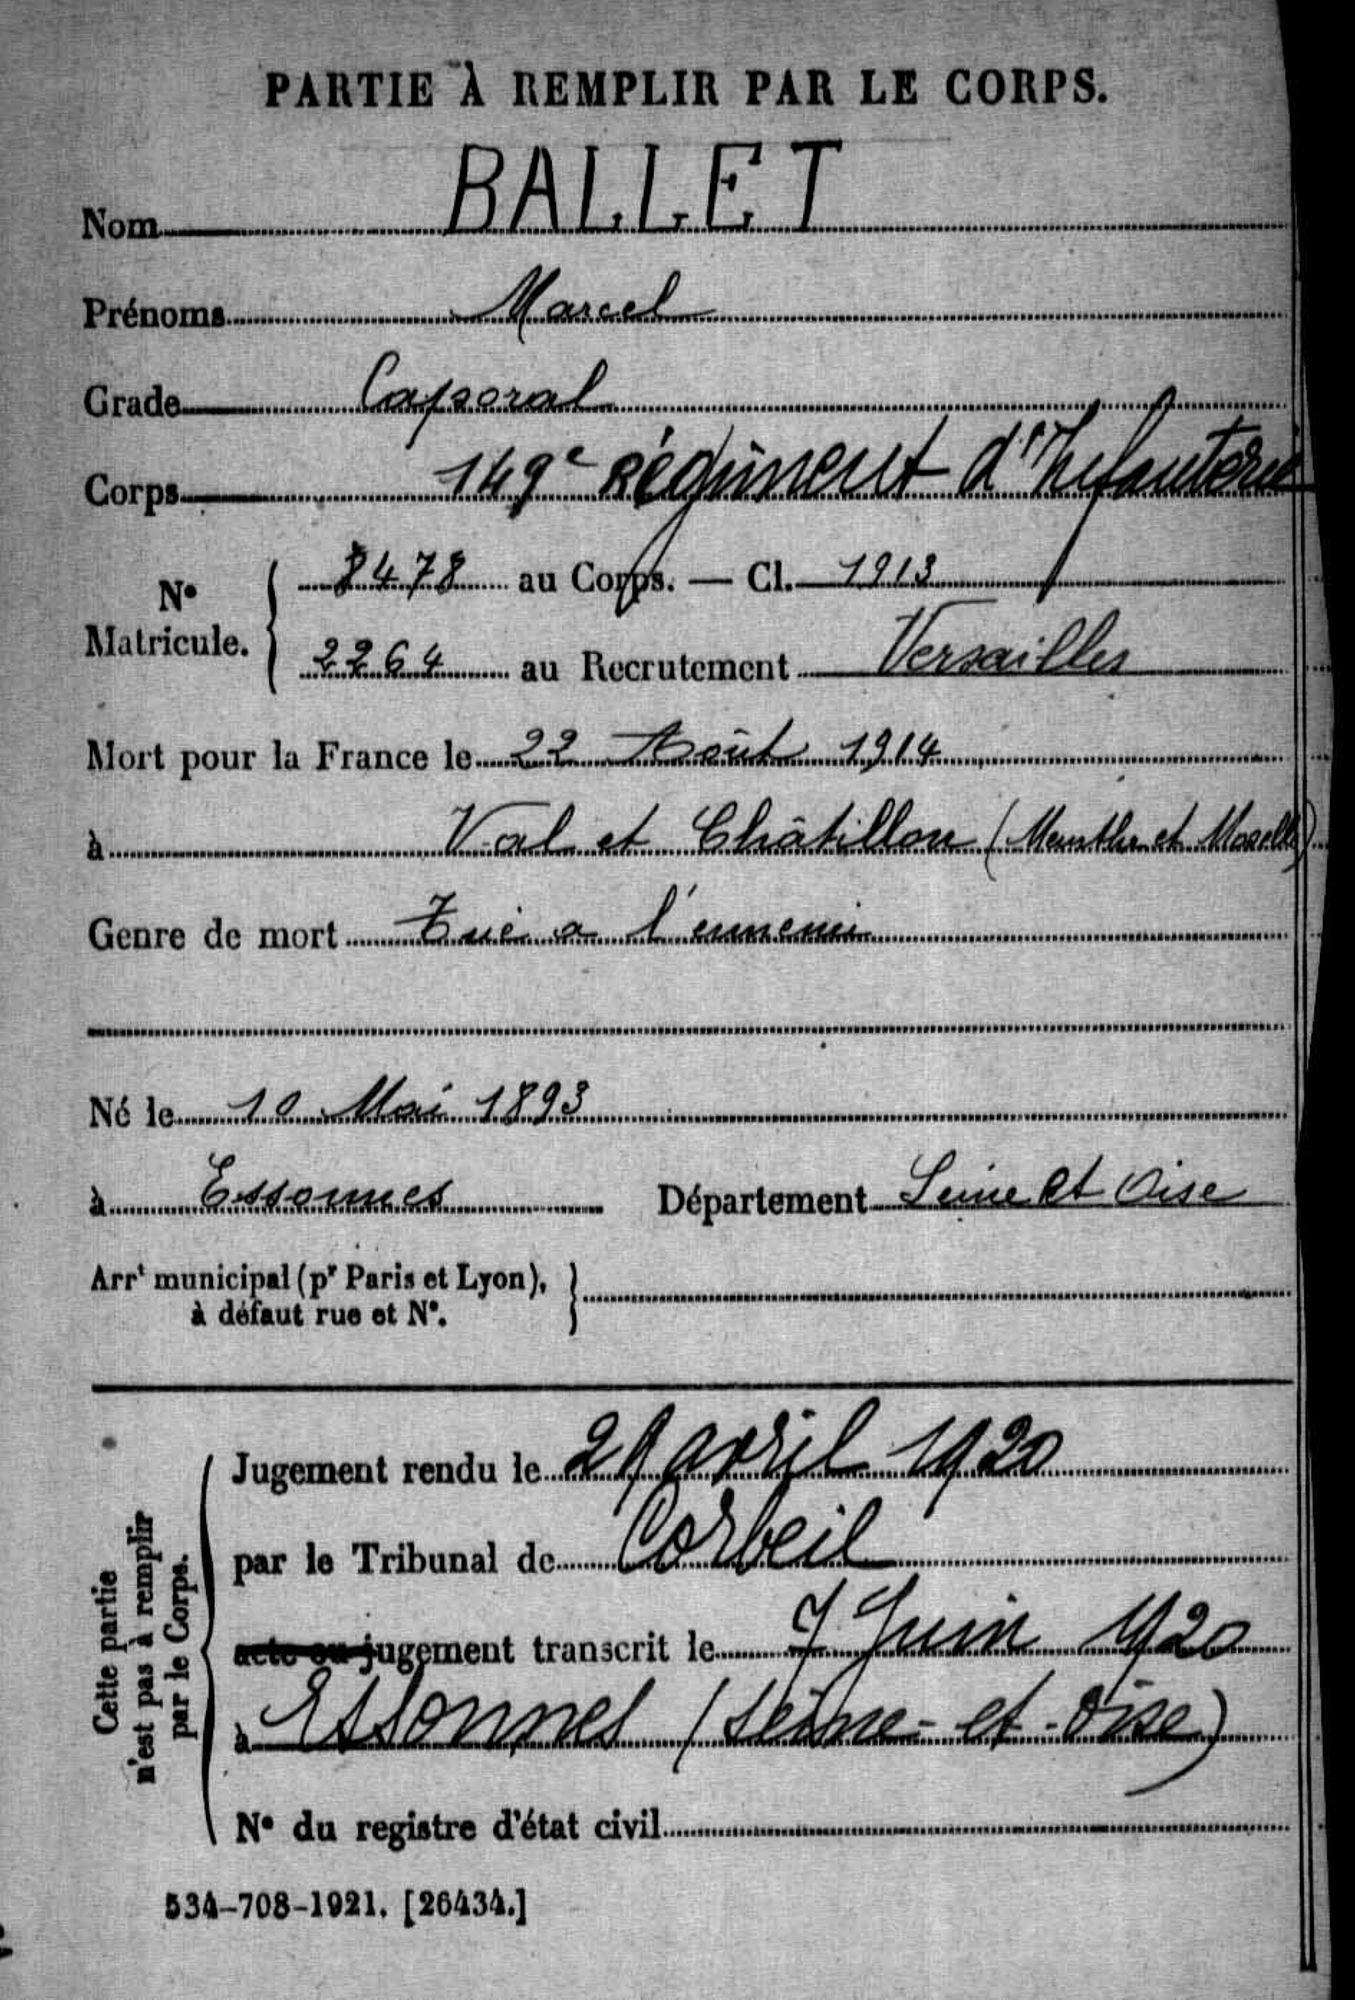 PARTIE À REMPLIR PAR LE CORPS.
Nom BALLET
Prénoms Marcel
Grade Caporal
Corps 149e Régiment d'Infanterie
N° Matricule. 8478 au Corps. — Cl. 1913
2264 au Recrutement Versailles
Mort pour la France le 22 Août 1914
à Val et Châtillon (Meurthe et Moselle)
Genre de mort Tué a l'ennemi
Né le 10 Mai 1893
à Essonnes Département Seine et Oise
Arrt municipal (pr Paris et Lyon),
à défaut rue et N°.
Cette partie
n'est pas à remplir
par le Corps.
Jugement rendu le avril 1920
par le Tribunal de Corbeil
acte ou jugement transcrit le 7 Juin 1920
à Essonnes (Seine-et-Oise)
N° du registre d'état civil
534-708-1921. [26434.]